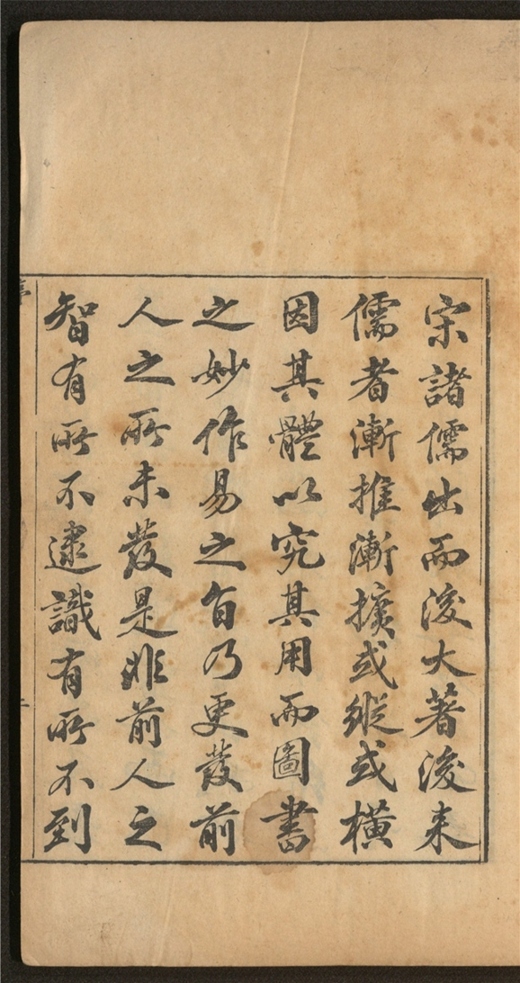 宋諸儒出而後大著後来
儒者漸推漸擴或縱或橫
因其體以究其用而圖書
之妙作易之旨乃更發前
人之所未發是非前人之
智有所不逮識有所不到